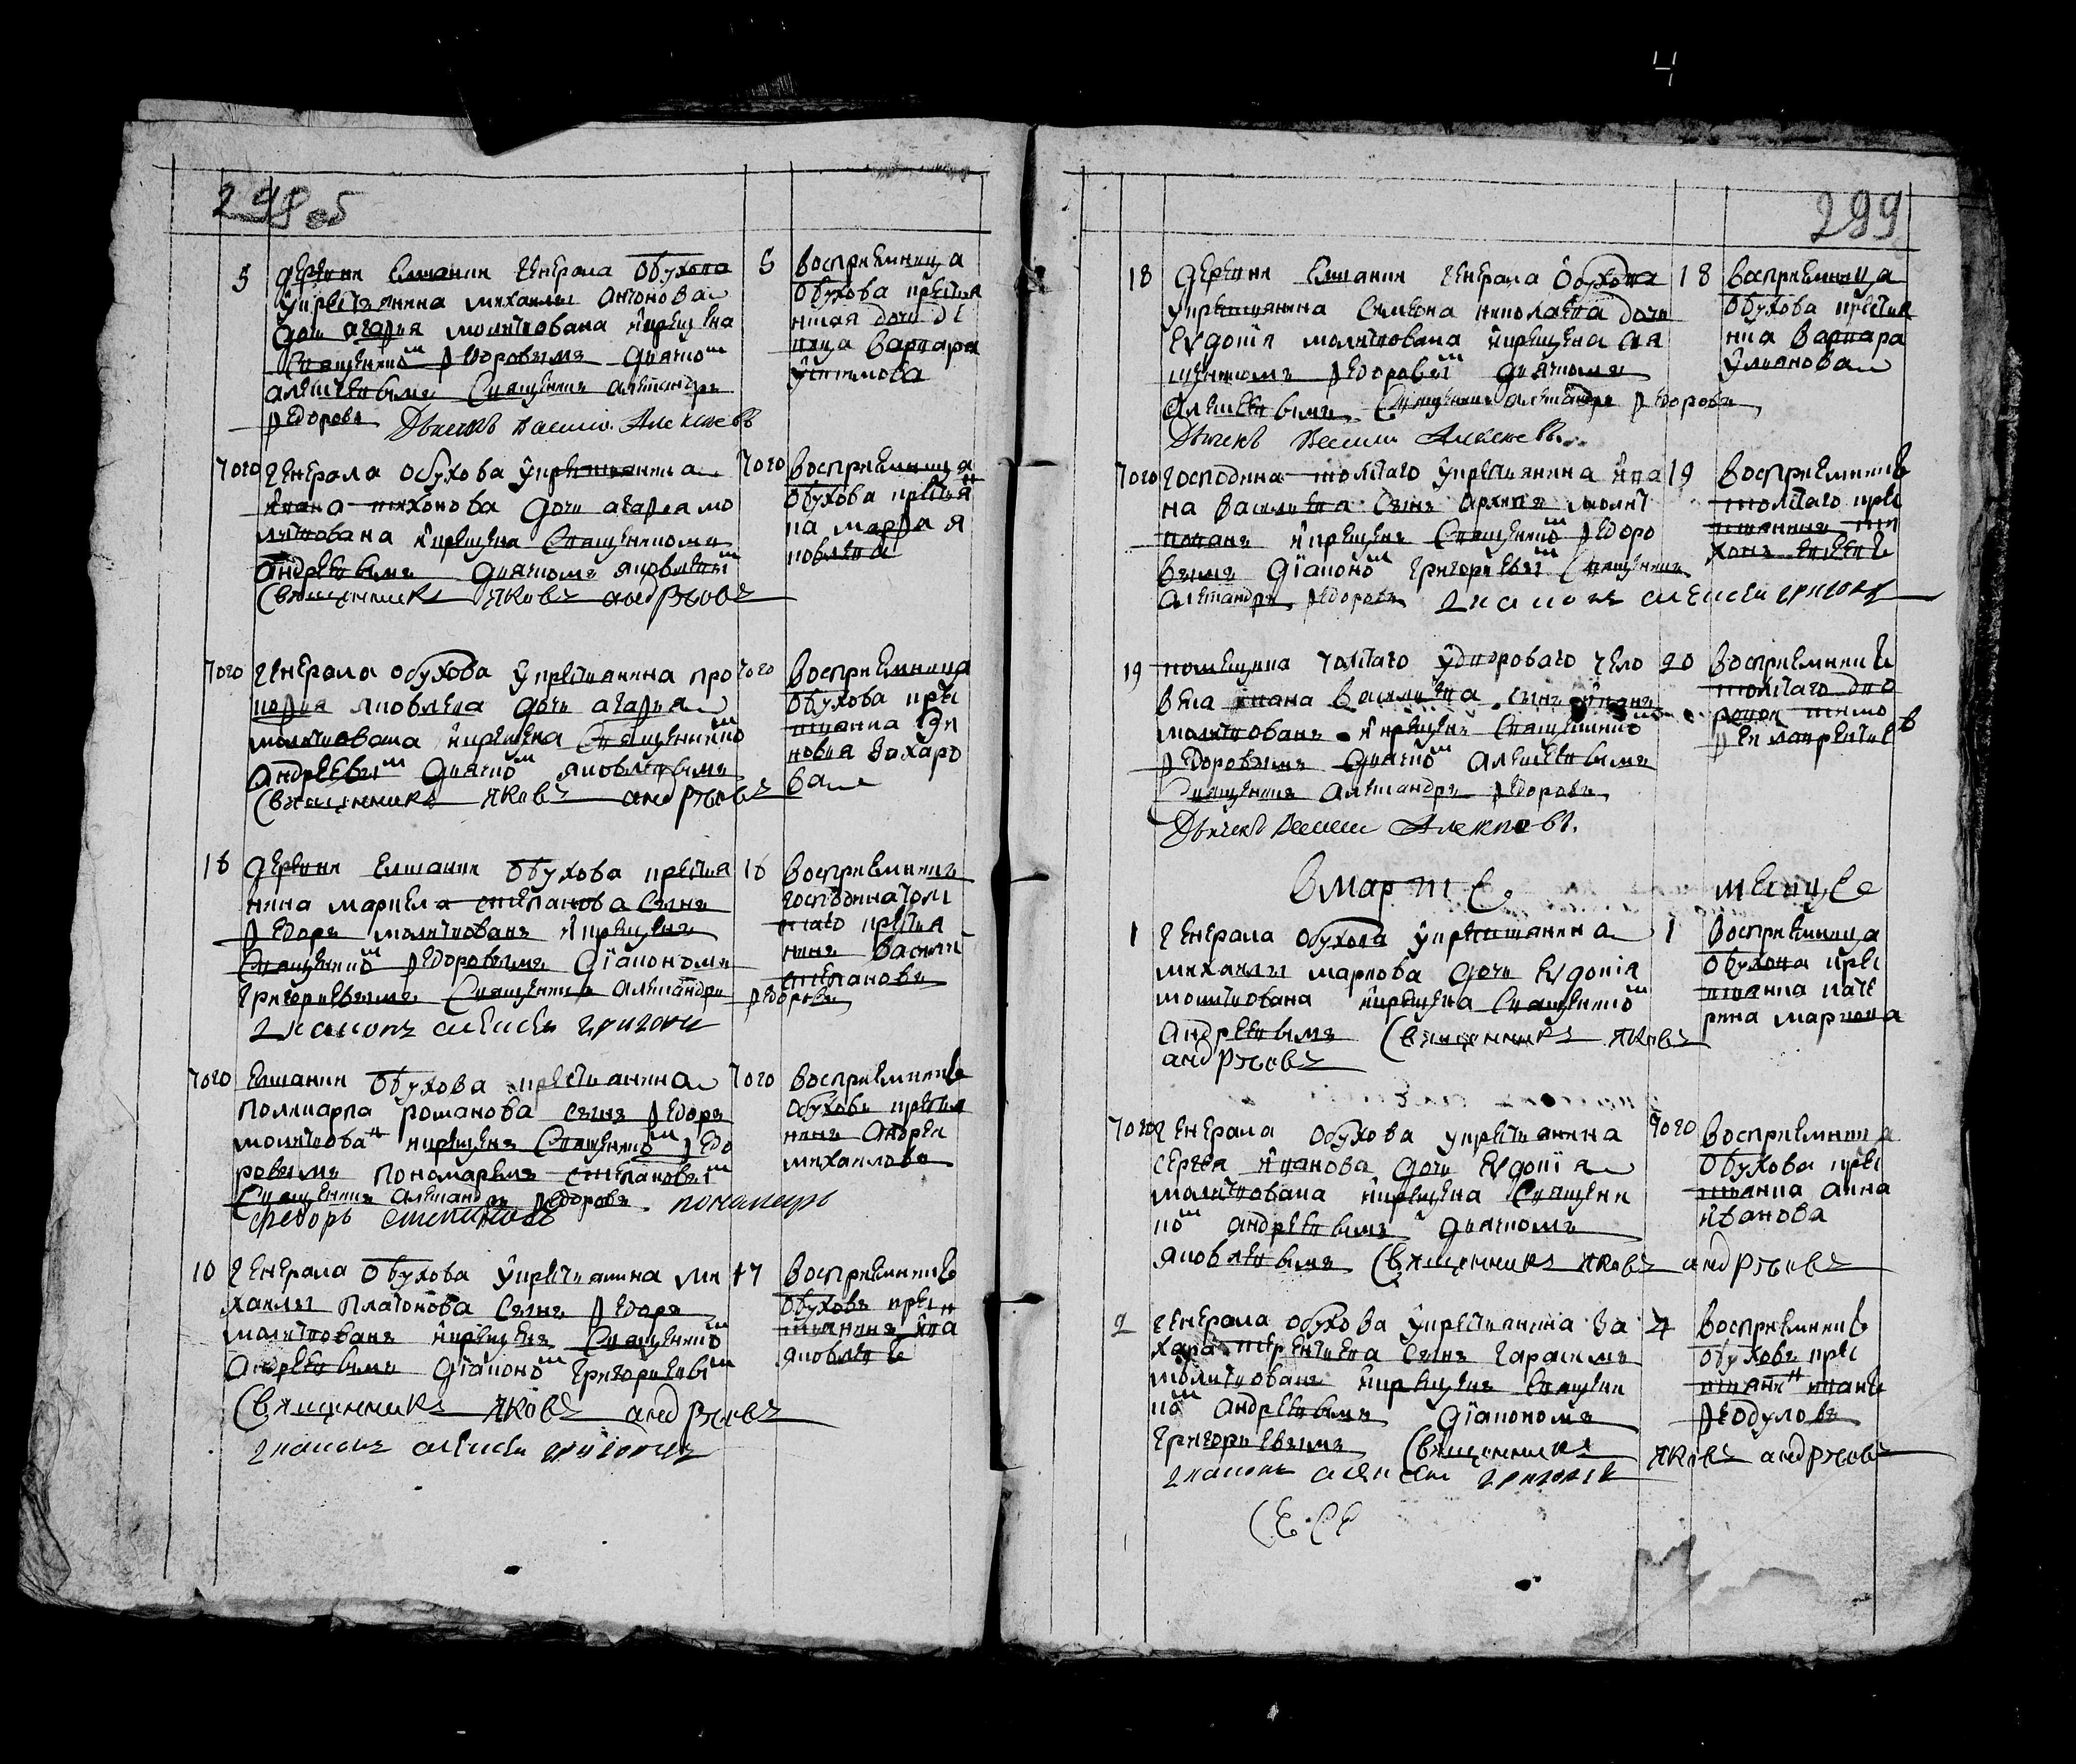 298 об
5 деревни Елшанки генерала Обухова
у крестьянина михаилы антонова
дочь агафия молитвована и крещена
священником Федоровым дьячком
алексеевым Священник александръ
Федоровъ Дьячекъ василии Алексеевъ
5 восприемница
Обухова крестья
нская дочь де
вица варвара
того генерала обухова у крестьянина
ивана тихонова дочь агафия мо
литвована и крещена Священникомъ
андреевымъ дьячкомъ яковлевым
Священникъ Яковъ андрѣевъ
того восприемница
обухова крестьян
ка марфа я
ковлева
того генерала обухова у крестьянина про
кофия яковлева дочь агафия
молитвована и крещена Священником
андреевым дьячком яковлевымъ
Священникъ Яковъ андрѣевъ
того восприемница
обухова кре
стьянка
захаро
ва
16 деревни Елшанки Обухова крестья
нина маркела степанова сынъ
Федоръ молитвованъ и крещенъ
Священником Федоровымъ диакономъ
григориевымъ Священникъ александръ Федоровъ
диаконъ алексеи григориевъ
16 восприемникъ
господина тол
стаго крестья
нинъ василий
степановъ
того Елшанки Обухова крестьянина
поликарпа романова сынъ Федоръ
молитвован и крещенъ Священником Федо
ровымъ пономаремъ степановым
Священникъ александръ Федоровъ пономарь
Федоръ степановъ
того восприемникъ
обухова крестья
нинъ андреи
михаиловъ
10 генерала Обухова у крестьянина ми
хаилы платонова сынъ Федоръ
молитвованъ и крещенъ Священником
андреевымъ диаконом григориевым
Священникъ Яковъ андрѣевъ
диаконъ алексеи григориевъ
17 восприемникъ
обуховъ кре
стьянинъ ива
яковлевъ
299
18 деревни Елшанки генерала Обухова
у крестьянина симеона николаева дочь
Еvдокия молитвована и крещена свя
щенникомъ Федоровым дьячкомъ
алексеевымъ Священникъ александръ Федоровъ
Дьячекъ Василии Алексеевъ
18 восприемница
обухова крестьян
ка варвара
ульянова
того господина толстаго у крестьянина ива
на васильева сынъ архипъ молит
вованъ и крещенъ Священником Федоро
вымъ диаконом григориевым Священникъ
александръ Федоровъ диаконъ алексеи григориевъ
19 восприемникъ
толстаго кре
стьянинъ ти
хонъ
19 помещика толстаго у дворового чело
века ивана васильева сынъ иванъ
молитвованъ и крещенъ Священником
Федоровымъ дьячком алексеевымъ
Священникъ александръ Федоровъ
Дьячекъ василии Алексеевъ
20 восприемникъ
толстаго дво
ровой тимо
фей лаврентиевъ
в марте месяце
1 генерала обухова у крестьянина
михаилы маркова дочь Еvдокия
молитвована и крещена Священником
андреевымъ Священникъ Яковъ
андрѣевъ
1 восприемница
обухова кре
стьянка кате
рина маркова
того генерала обухова у крестьянина
сергея иванова дочь Еvдокия
молитвована и крещена Священни
ком андреевымъ дьячкомъ
яковлевымъ Священникъ Яковъ андрѣевъ
того восприемница
Обухова кре
стьянка анна
иванова
2 генерала обухова у крестьянина за
хара терентиева сынъ гарасимъ
молитвованъ и крещенъ Священни
ком андреевымъ диакономъ
григориевымъ Священникъ Яковъ андрѣевъ
диаконъ алексеи григориевъ
восприемникъ
обуховъ кре
стьянин иванъ
Феодуловъ